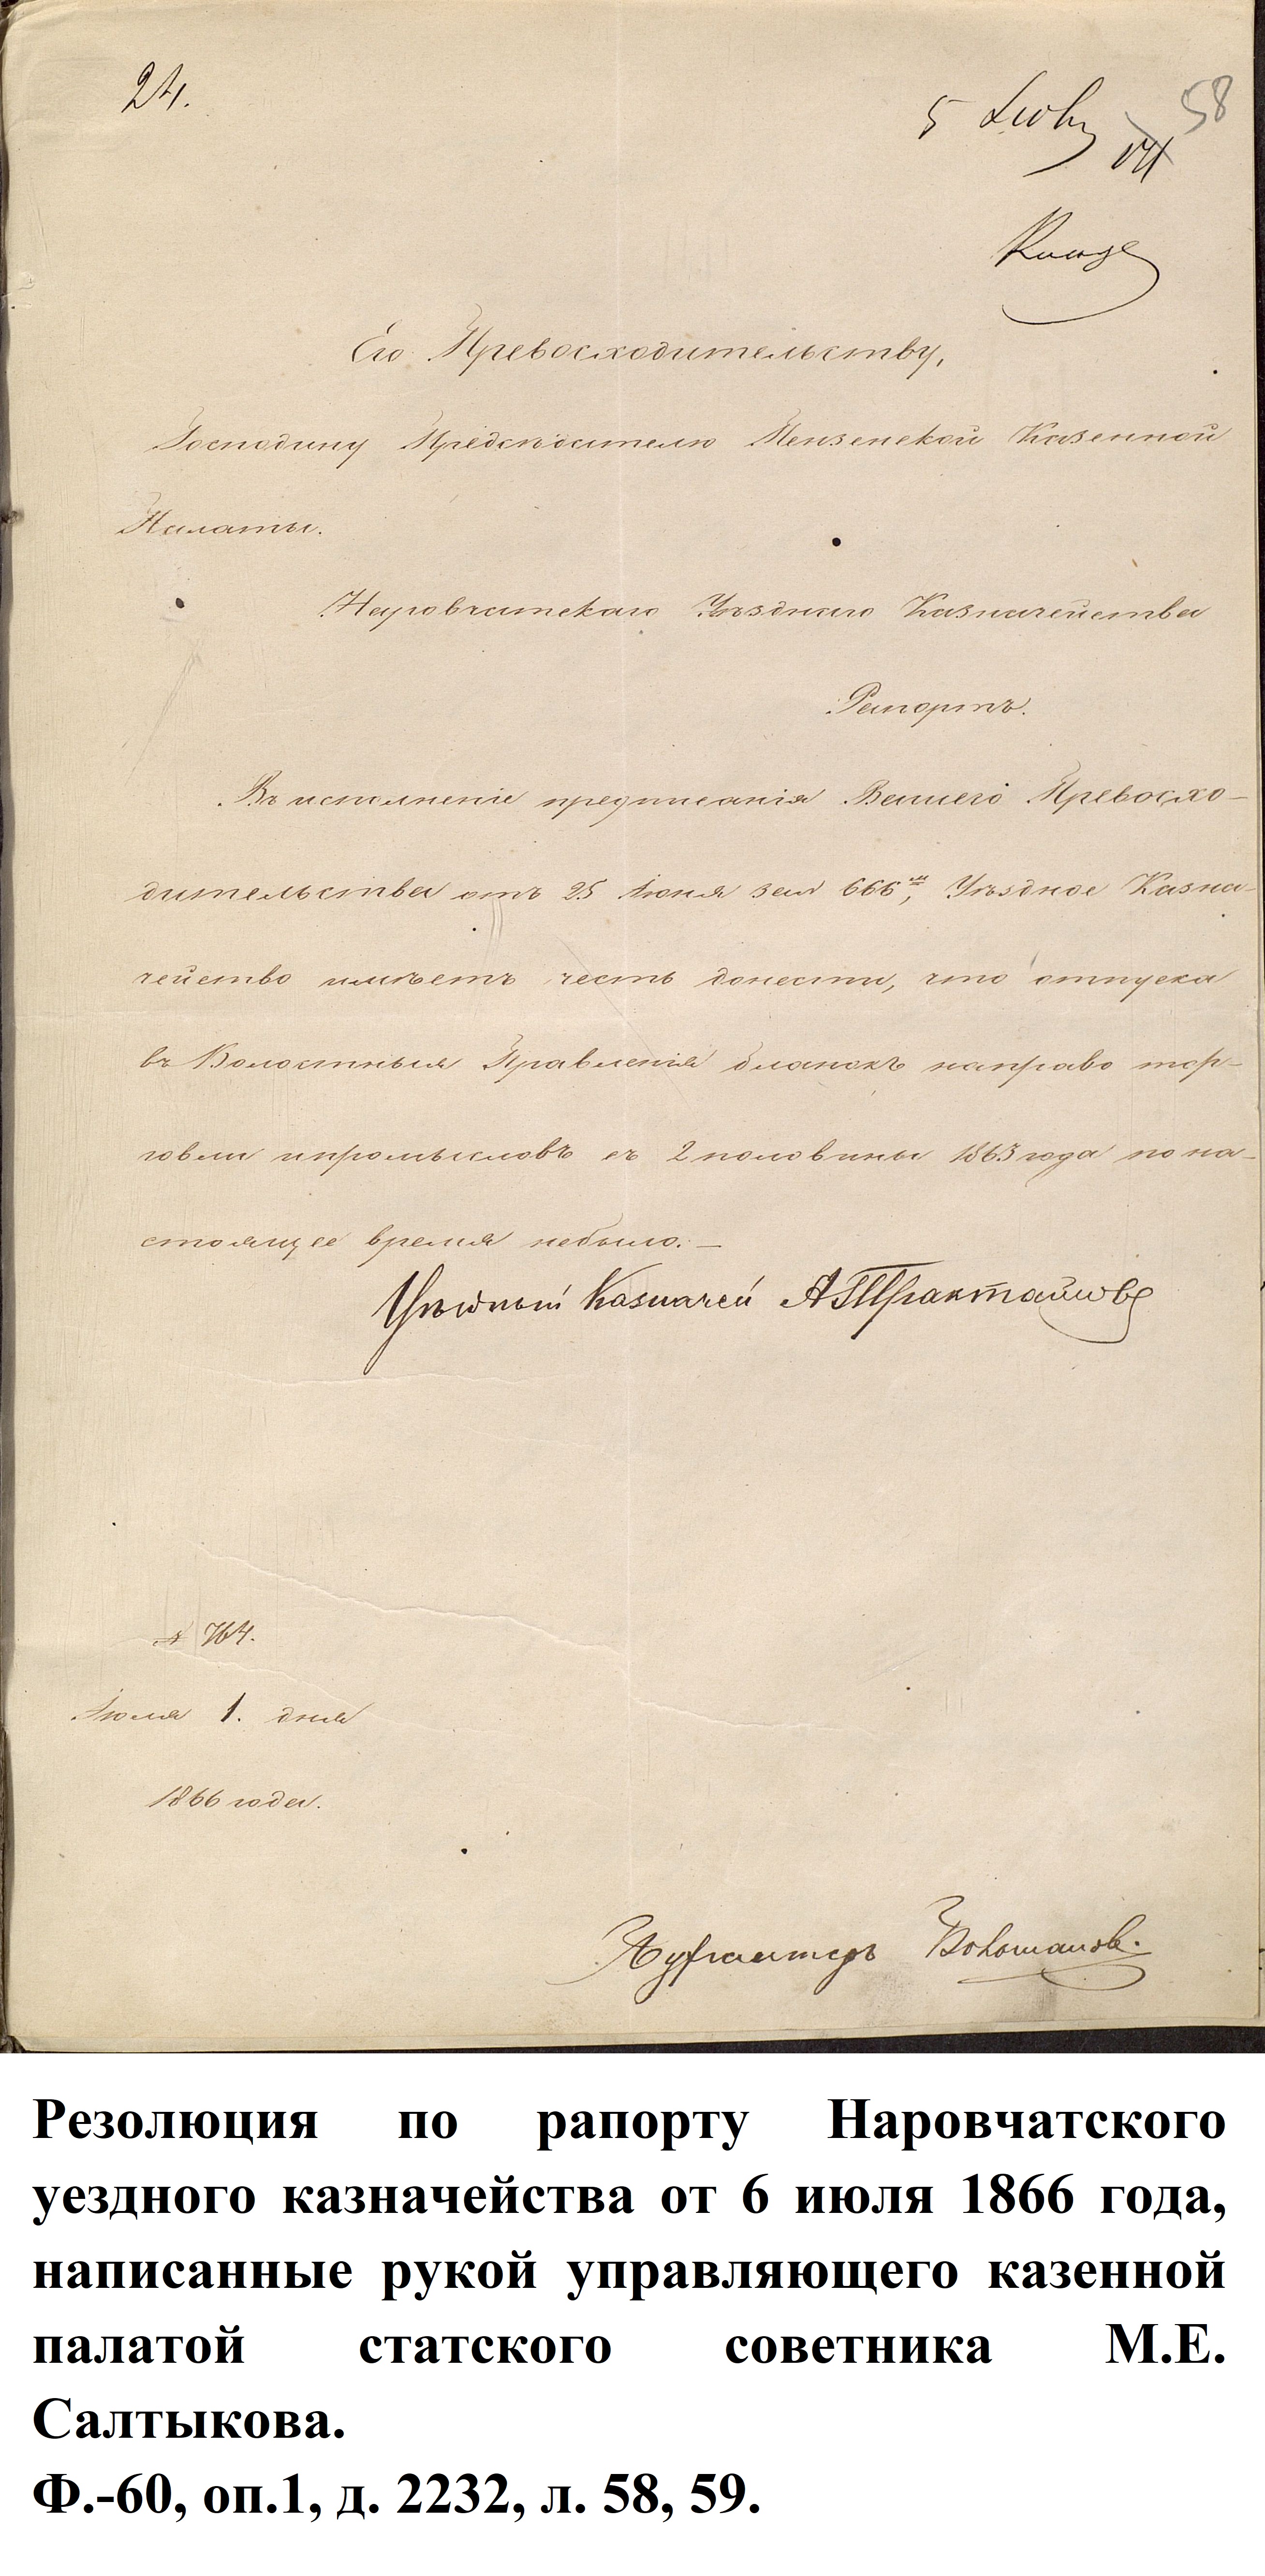 24.
58
5 Июля
Его Превосходительству,
Господину Предсѣдателю Пензенской Казенной
Палаты.
Наровчатскаго Уѣзднаго Казначейства
Рапортъ.
Въ исполненіе предписанія Вашего Превосхо-
дительства отъ 25 Іюня за № 666, Уѣздное Казна-
чейство имѣетъ честь донести, что отпуска
въ Волостныя Правленія бланокъ направо тор-
говли ипромысловъ съ 2 половины 1863 года по на-
стоящее время небыло.—
Уѣздный Казначей
№ 764.
Іюля 1. дня
1866 года.
Бухгалтеръ
Резолюция по рапорту Наровчатского
уездного казначейства от 6 июля 1866 года,
написанные рукой управляющего казенной
палатой статского советника М.Е.
Салтыкова.
Ф.-60, оп.1, д. 2232, л. 58, 59.